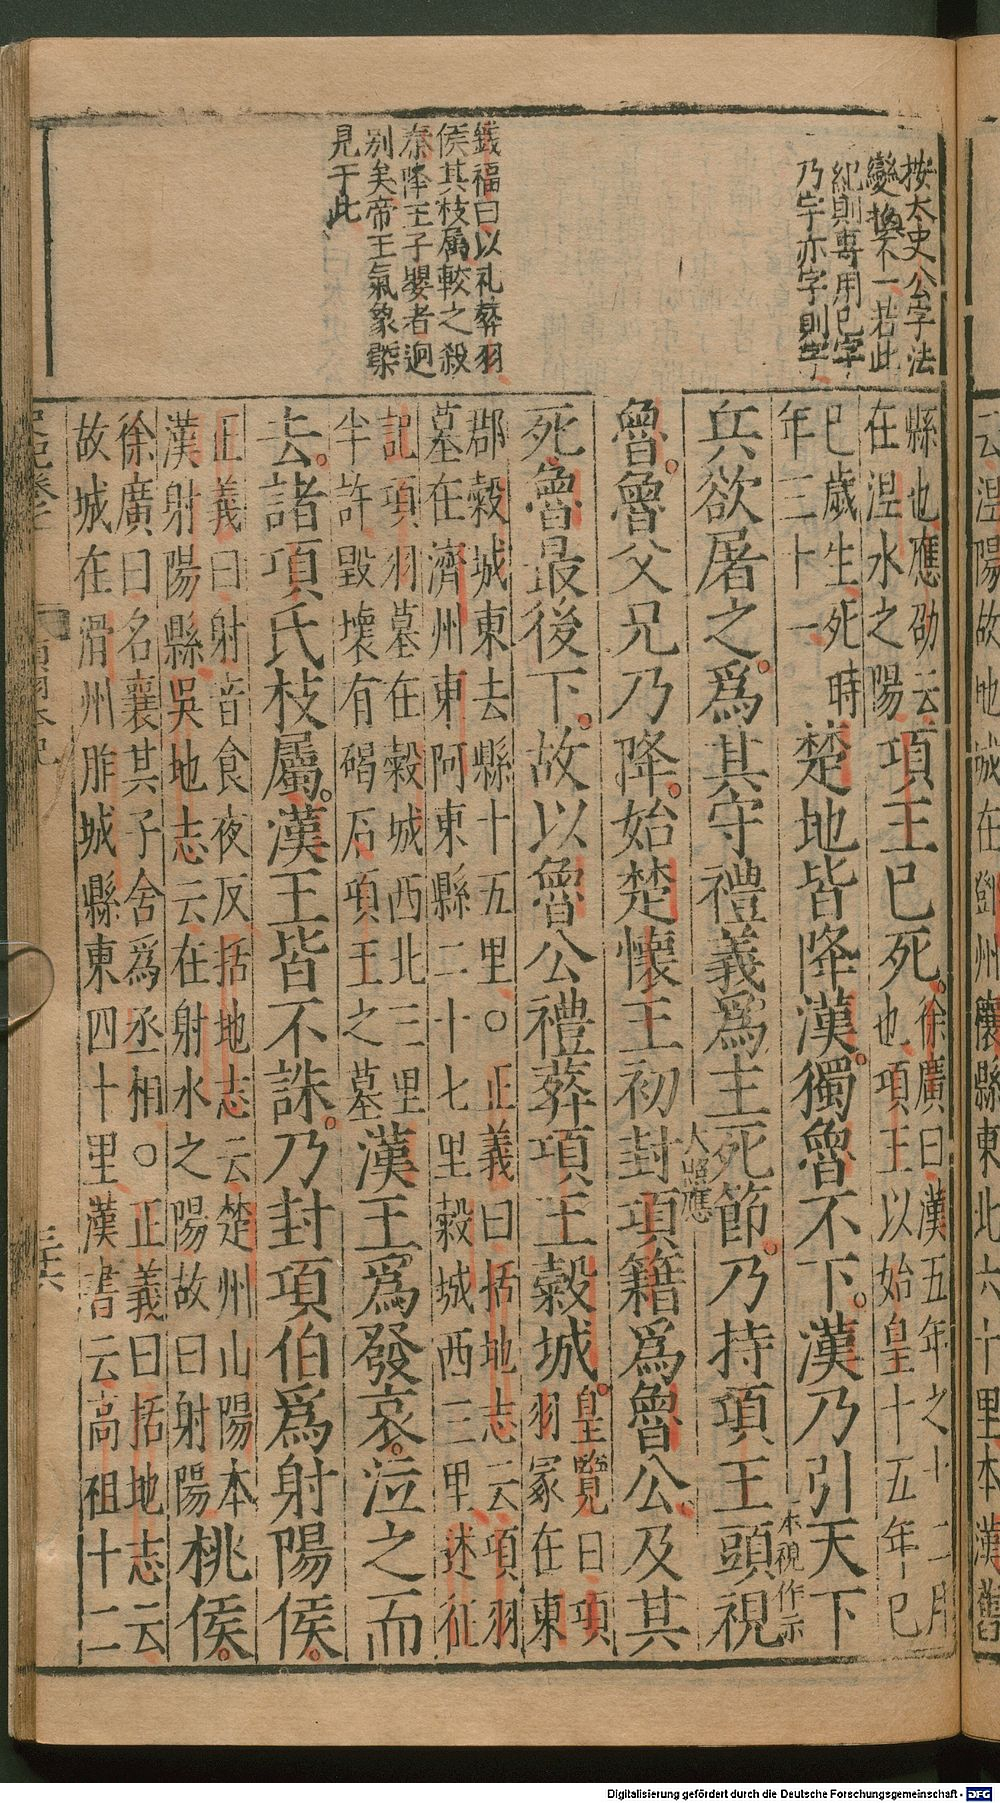 按太史公字法
變換不一若此
紀則專用已字
乃字亦字則字
錢福曰以礼葬羽
侯其枝属較之殺
秦降王子嬰者迥
别矣帝王氣象槩
見于此
縣也應劭云
在涅水之陽
項王已死
徐廣曰漢五年之十二月
也項王以始皇十五年巳
巳歲生死時
年三十一
楚地皆降漢獨魯不下漢乃引天下
兵欲屠之爲其守禮義爲主死節乃持項王頭視
一本視作示
大照應
魯魯父兄乃降始楚懷王初封項籍爲魯公及其
死魯最後下故以魯公禮葬項王穀城
皇覽曰項
羽冢在東
郡穀城東去縣十五里○正義曰括地志云項羽
墓在濟州東阿東縣二十七里穀城西三里述征
記項羽墓在穀城西北三里
半許毀壞有碣石項王之墓
漢王爲發哀泣之而
去諸項氏枝屬漢王皆不誅乃封項伯爲射陽侯
正義曰射音食夜反括地志云楚州山陽本
漢射陽縣吳地志云在射水之陽故曰射陽
桃侯
徐廣曰名襄其子舍爲丞相○正義曰括地志云
故城在滑州胙城縣東四十里漢書云高祖十二
史記卷七
項羽本紀
三十六
云涅陽故地城在鄧州穰縣東北六十里本漢舊
Digitalisierung gefördert durch die Deutsche Forschungsgemeinschaft - DFG